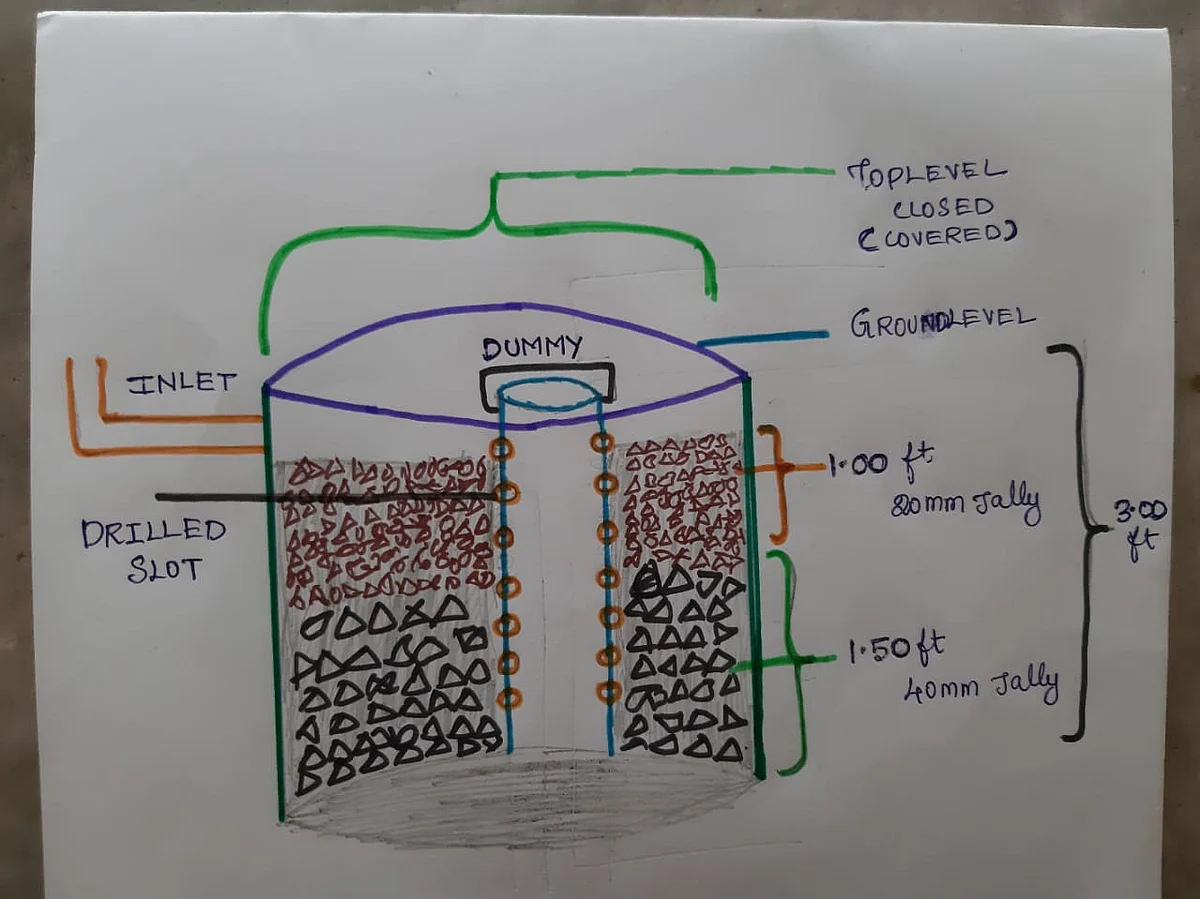 TOPLEVEL
CLOSED
(COVERED)
GROUNDLEVEL
DUMMY
INLET
1.00 ft
20mm Jally
3.00
ft
DRILLED
SLOT
1.50 ft
40mm Jally